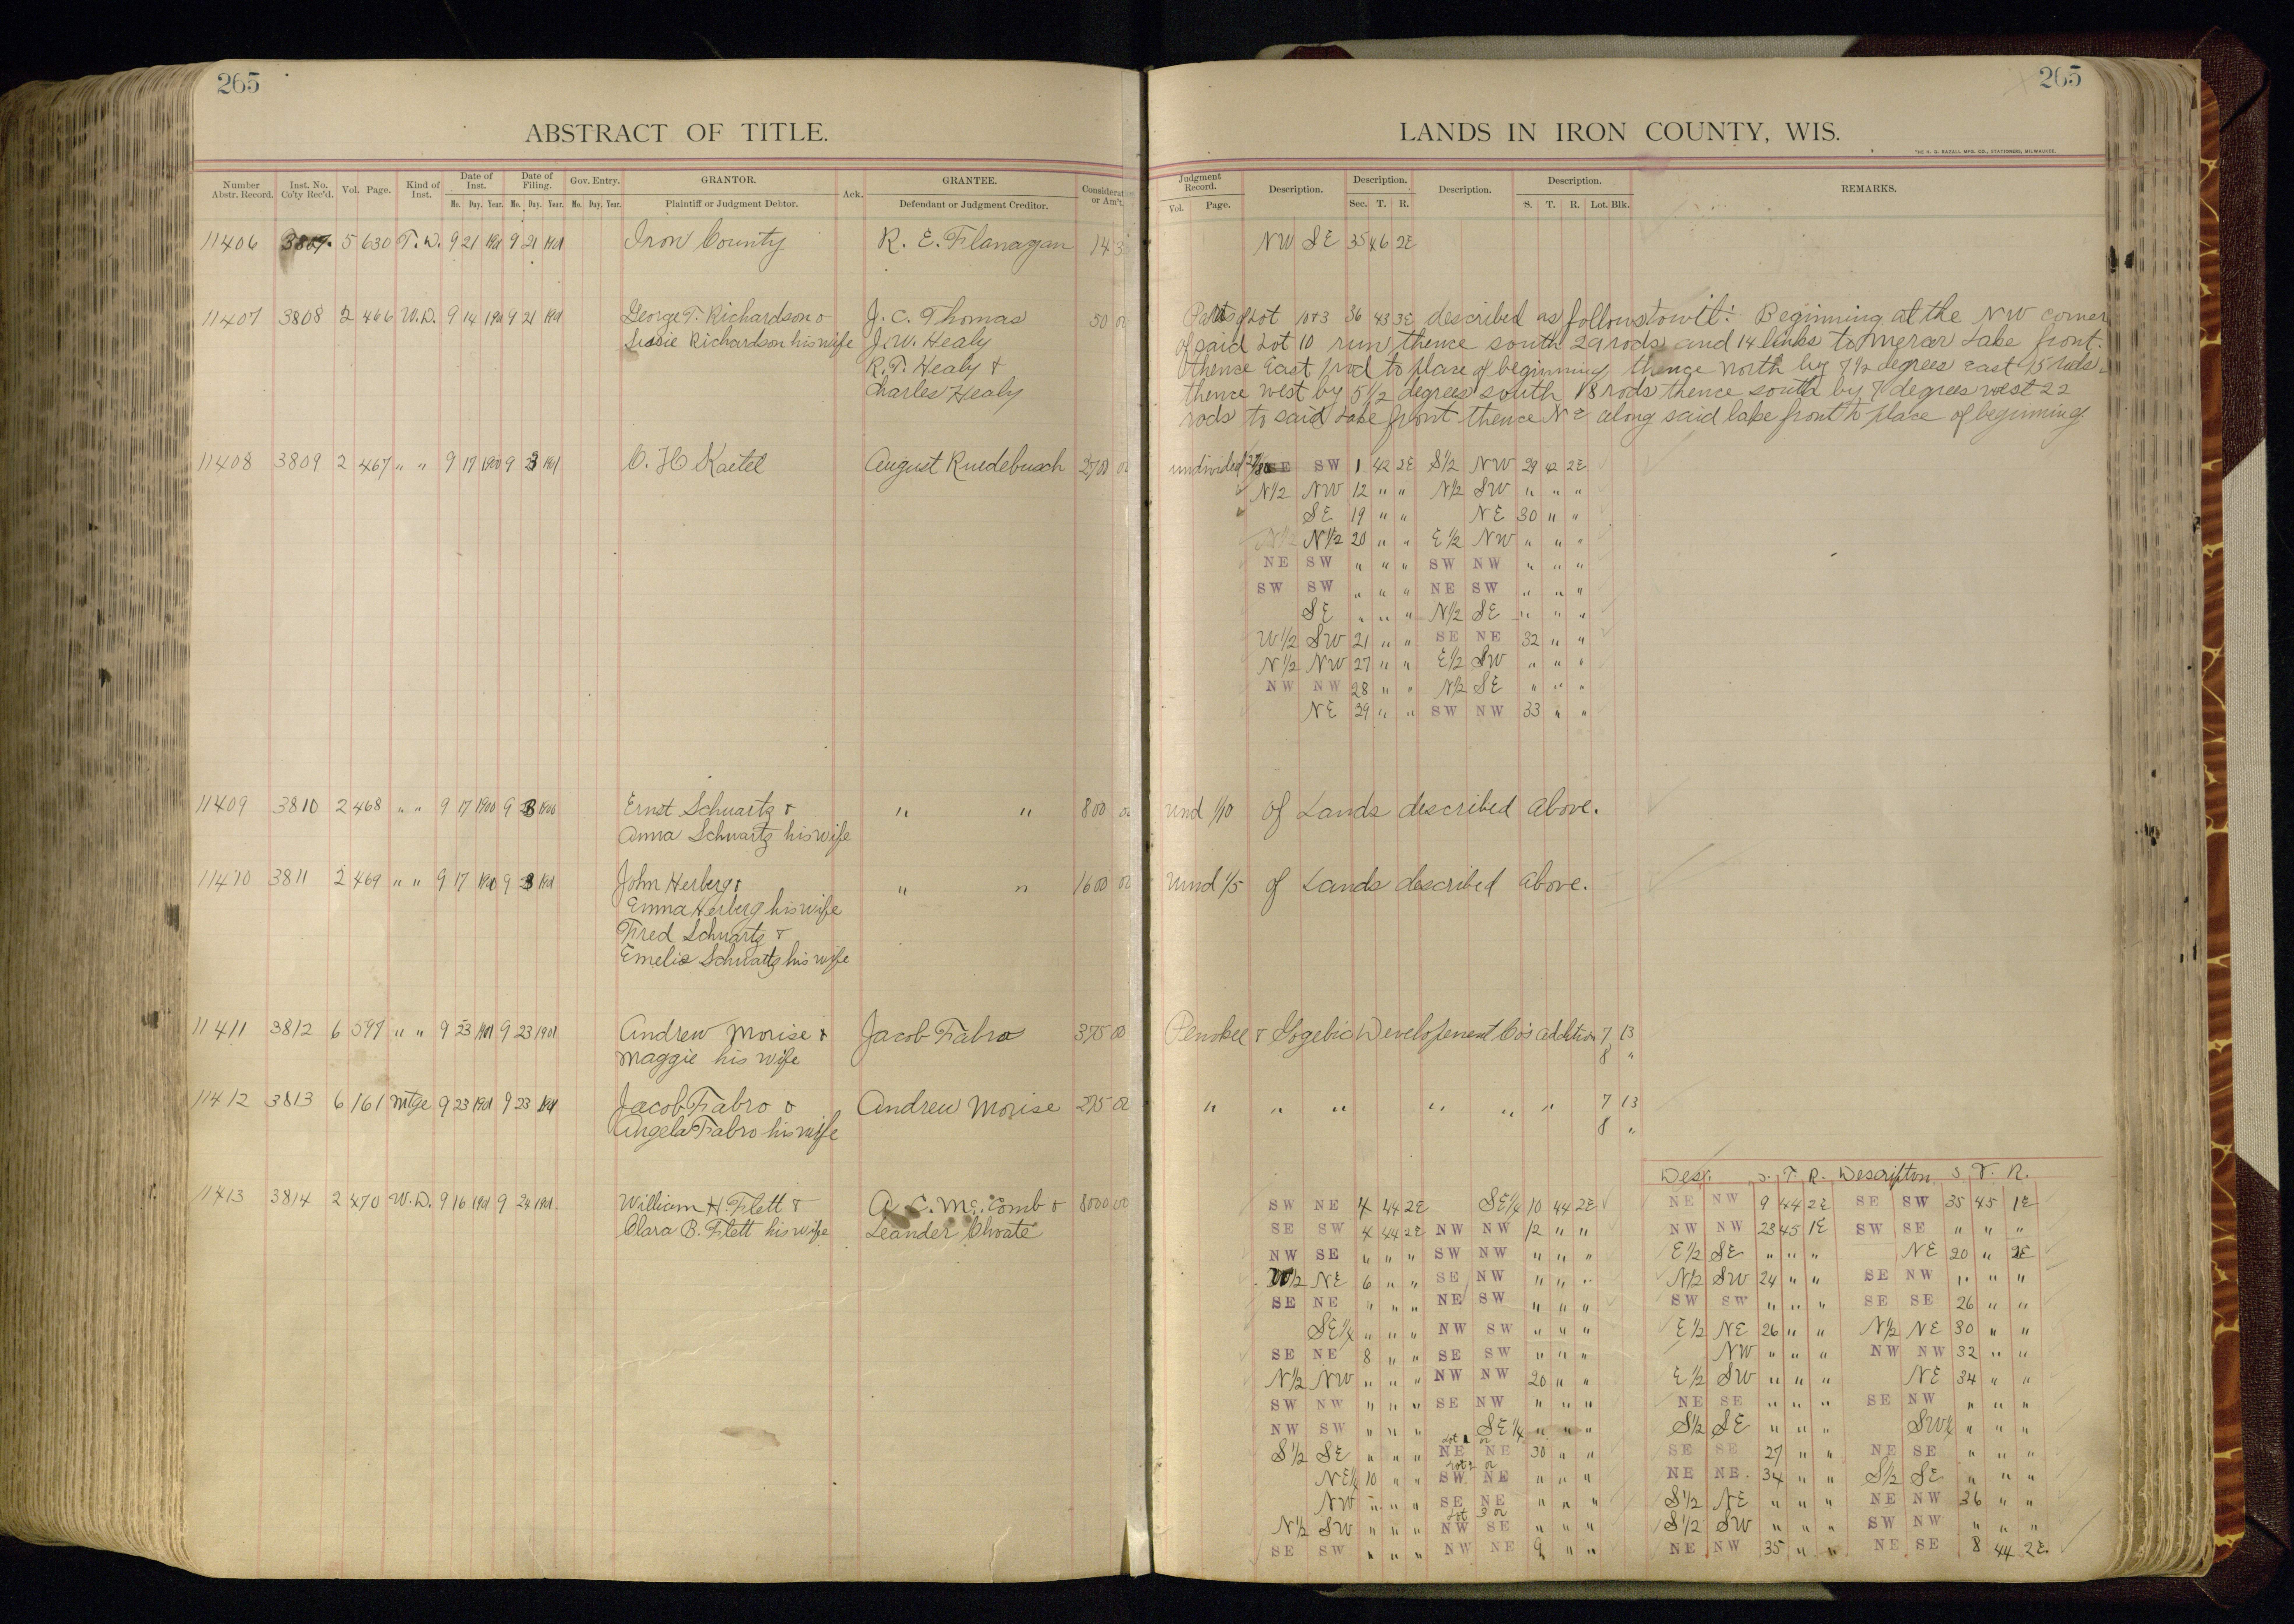 265
ABSTRACT OF TITLE.
Number Abstr. Record. Inst. No. Co'ty Rec'd. Vol. Page. Kind of Inst. Date of Inst. Mo. Day. Year. Date of Filing. Mo. Day. Year. Gov. Entry. Mo. Day. Year. GRANTOR. Plaintiff or Judgment Debtor. Ack. GRANTEE. Defendant or Judgment Creditor. Consideration or Am't.
11406 3807 5 630 T.D. 9 21 1901 9 21 1901 Iron County R. E. Flanagan 14
11407 3808 2 466 W.D. 9 14 9 21 1901 George T. Richardson & J. C. Thomas 50 00
Richardson his wife J. W. Healy
R. T. Healy &
Charles Healy
11408 3809 2 467 " " 9 17 1900 9 23 1901 August Ruedebusch 2700 00
11409 3810 2 468 " " 9 17 1900 9 23 Ernst Schwartz & " " 800 00
Anna Schwartz his wife
11410 3811 2 469 " " 9 17 9 23 1901 John Herberg & " " 1600 00
Emma Herberg his wife
Fred Schwartz &
Emelie Schwartz his wife
11411 3812 6 597 " " 9 23 1901 9 23 1901 Andrew Morise & Jacob Fabro 375 00
Maggie his wife
11412 3813 6 161 Mtge 9 23 1901 9 23 1901 Jacob Fabro & Andrew Morise 275 00
Angela Fabro his wife
11413 3814 2 470 W.D. 9 16 1901 9 24 1901 William H. Flett & A. C. McComb & 8000 00
Clara B. Flett his wife Leander Choate
265
LANDS IN IRON COUNTY, WIS.
THE H. G. RAZALL MFG. CO., STATIONERS, MILWAUKEE.
Judgment Record. Vol. Page. Description. Description. Sec. T. R. Description. Description. S. T. R. Lot. Blk. REMARKS.
NW SE 35 46 2E
Parts of Lot 10 & 3 36 43 3E described as follows to wit: Beginning at the NW corner
of said Lot 10 run thence south 29 rods and 14 links to Lake front.
thence East 1 rod to place of beginning thence north by 7 1/2 degrees east 15 rods.
thence west by 5 1/2 degrees south 18 rods thence south by 7 degrees west 22
rods to said Lake front thence NE along said lake front to place of beginning
undivided SE SW 1 42 2E S1/2 NW 29 42 2E
" N1/2 NW 12 " " N1/2 SW " " "
" SE 19 " " NE 30 " "
N1/2 N1/2 20 " " E1/2 NW " " "
NE SW " " " SW NW " " "
SW SW " " " NE SW " " "
SE " " " N1/2 SE " " "
W1/2 SW 21 " " SE NE 32 " "
N1/2 NW 27 " " E1/2 SW " " "
NW NW 28 " " N1/2 SE " " "
NE 29 " " SW NW 33 " "
und 1/10 of Lands described above.
und 1/5 of Lands described above.
Penokee & Gogebic Development Co's addition 7 13
8 "
" " " " " " 7 13
8 "
Desc. S. T. R. Description S. T. R.
SW NE 4 44 2E SE1/4 10 44 2E NE NW 9 44 2E SE SW 35 45 1E
SE SW 4 44 2E NW NW 12 " " NW NW 23 45 1E SW SE " " "
NW SE " " " SW NW " " " E1/2 SE " " " NE 20 " 2E
W1/2 NE 6 " " SE NW " " " N1/2 SW 24 " " SE NW " " "
SE NE " " " NE SW " " " SW SW " " " SE SE 26 " "
SE1/4 " " " NW SW " " " E1/2 NE 26 " " N1/2 NE 30 " "
SE NE 8 " " SE SW " " " NW " " " NW NW 32 " "
N1/2 NW " " " NW NW 20 " " E1/2 SW " " " NE 34 " "
SW NW " " " SE NW " " " NE SE " " " SE NW " " "
NW SW " " " SE1/4 " " " S1/2 SE " " " SW1/4 " " "
Lot 1 or
S1/2 SE " " " NE NE 30 " " SE SE 27 " " NE SE " " "
Lot 2 or
NE1/4 10 " " SW NE " " " NE NE 34 " " S1/2 SE " " "
NW " " " SE NE " " " S1/2 NE " " " NE NW 36 " "
Lot 3 or
N1/2 SW " " " NW SE " " " S1/2 SW " " " SW NW " " "
SE SW " " " NW NE 9 " " NE NW 35 " " NE SE 8 44 2E